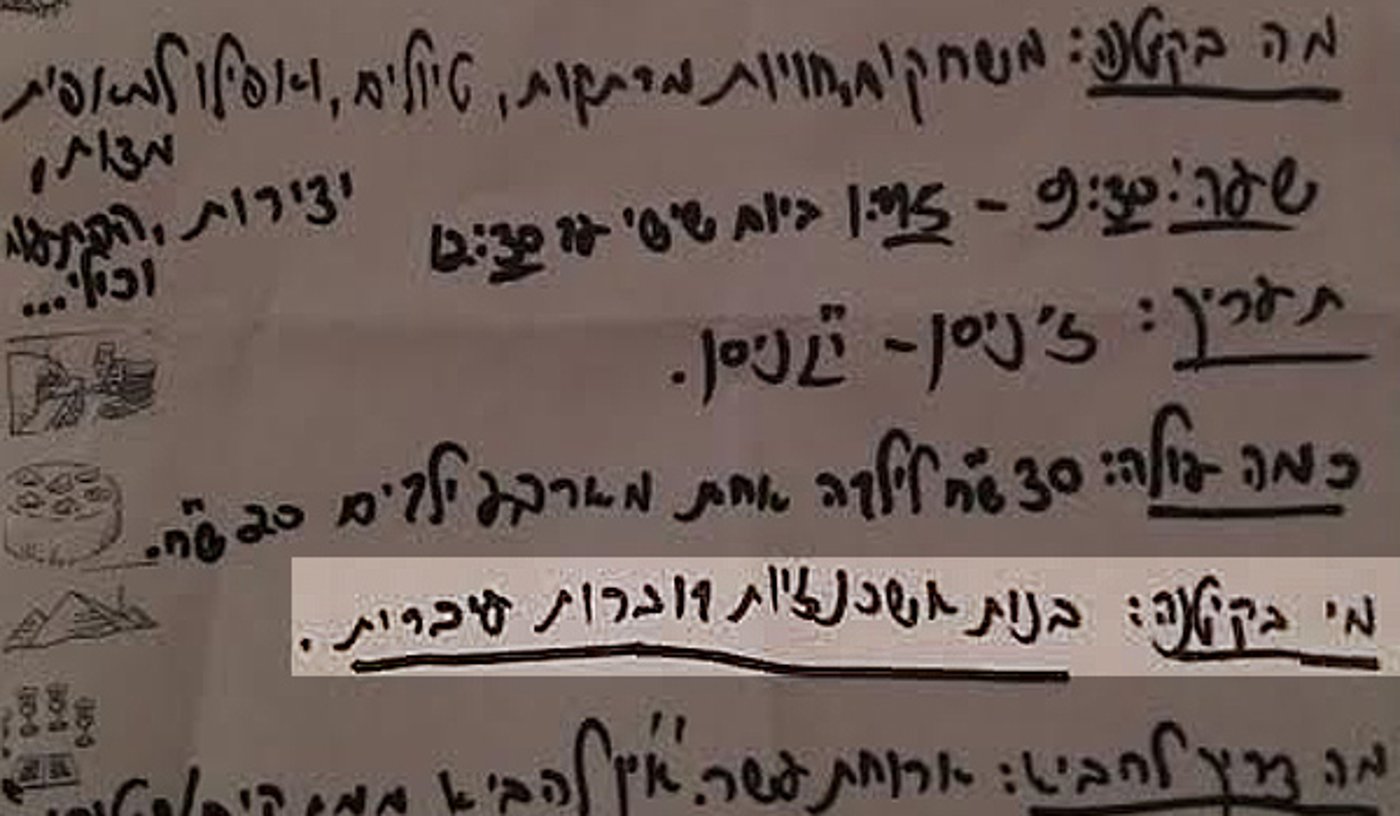 מה בקיטנה: משחקים, חוויות מרתקות, טיולים, ואפילו למאפית
מצות,
יצירות, הפתעות
וכולי...
שעה: 9:30 - 1:45 ביום שישי עד 12:30
תאריך: ז' ניסן - י"ג ניסן.
כמה עולה: 30 ש"ח לילדה אחת מארבע ילדים 20 ש"ח.
מי בקיטנה: בנות אשכנזיות דוברות עיברית.
מה צריך להביא: ארוחת עשר. אין להביא ממתקים/